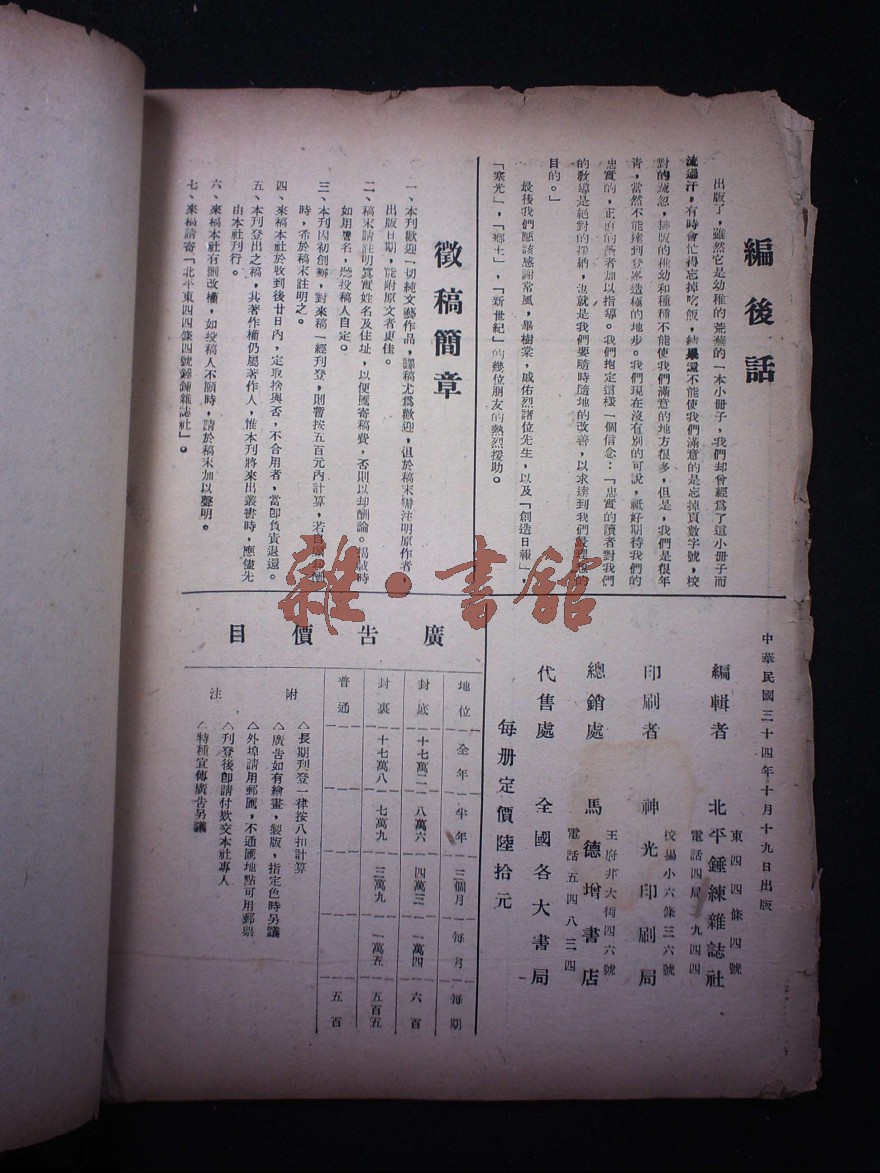 編後話
出版了，雖然它是幼稚的荒蕪的一本小册子，我們却曾經爲了這小册子而
流過汗，有時會忙得忘掉吃飯，結果還不能使我們滿意的是忘掉頁數字號，校
對的疏忽，排版的稚幼和種種不能使我們滿意的地方很多，但是，我們是很年
青，當然不能達到登峯造極的地步。我們現在沒有別的可說，祗好期待我們的
忠實的，正直的讀者加以指導。我們抱定這樣一個信念：「忠實的讀者對我們
的教導是絕對的採納，也就是我們要隨時隨地的改善，以求達到我們最理想的
目的。」
最後我們應該感謝常風，畢樹棠，戚佑烈諸位先生，以及「創造日報」，
「寒光」，「鄉土」，「新世紀」的幾位朋友的熱烈援助。
徵稿簡章
一、本刊歡迎一切純文藝作品，譯稿尤爲歡迎，但於稿末需注明原作者，
出版日期，能附原文者更佳。
二、稿末請註明真實姓名及住址，以便匯寄稿費，否則以却酬論。揭載時
如用署名，聽投稿人自定。
三、本刊因初創辦，對來稿一經刊登，則暫按五百元內計算，若
時，希於稿末註明之。
四、來稿本社於收到後廿日內，定取捨與否，不合用者，當卽負責退還。
五、本刊登出之稿，其著作權仍屬著作人，惟本刊將來出叢書時，應儘先
由本社刊行。
六、來稿本社有刪改權，如投稿人不願時，請於稿末加以聲明。
七、來稿請寄「北平東四四條四號錘鍊雜誌社」。
雜·書館
中華民國三十四年十月十九日出版
編輯者 北平錘練雜誌社
東四四條四號
電話四局一九四四
印刷者 神光印刷局
校場小六條三六號
總銷處 馬德增書店
王府井大街四六號
電話五四八三四
代售處 全國各大書局
每册定價陸拾元
廣告價目
地位 全年 半年 三個月 每月 每期
封底 十七萬二 八萬六 四萬三 一萬四 六百
封裏 十七萬八 七萬九 三萬九 一萬五 五百五
普通 五百
附注
△長期刊登一律按八扣計算
△廣告如有繪畫，製版，指定色時另議
△外埠請用郵匯，不通匯地點可用郵票
△刊登後卽請付欵交本社專人
△特種宣傳廣告另議